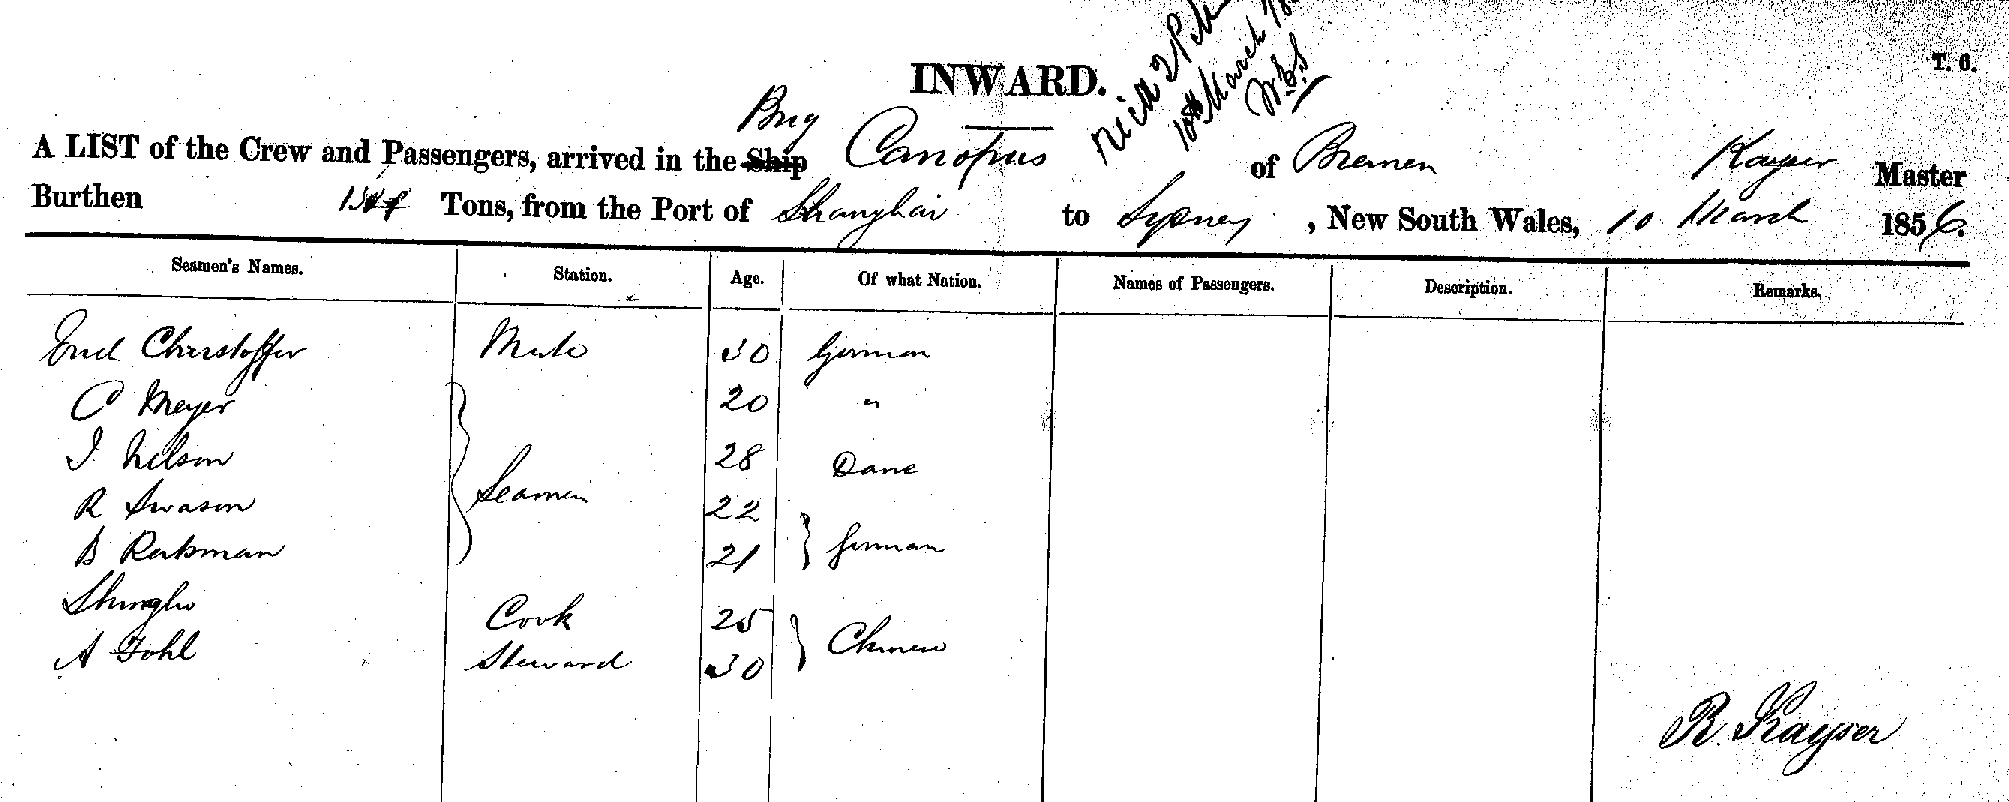 INWARD.
T. 6.
10th March
Brig
A LIST of the Crew and Passengers, arrived in the Ship Canopus of Bremen Kayser Master
Burthen Tons, from the Port of Shanghai to Sydney, New South Wales, 10 March 1856.
Seamen's Names. Station. Age. Of what Nation. Names of Passengers. Description. Remarks.
Christoffer Mate 30 German
C Meyer 20 "
J. Nilson 28 Dane
R Swason Seamen 22
B 21 German
Cook 25
A Steward 30 Chinese
R. Kayser